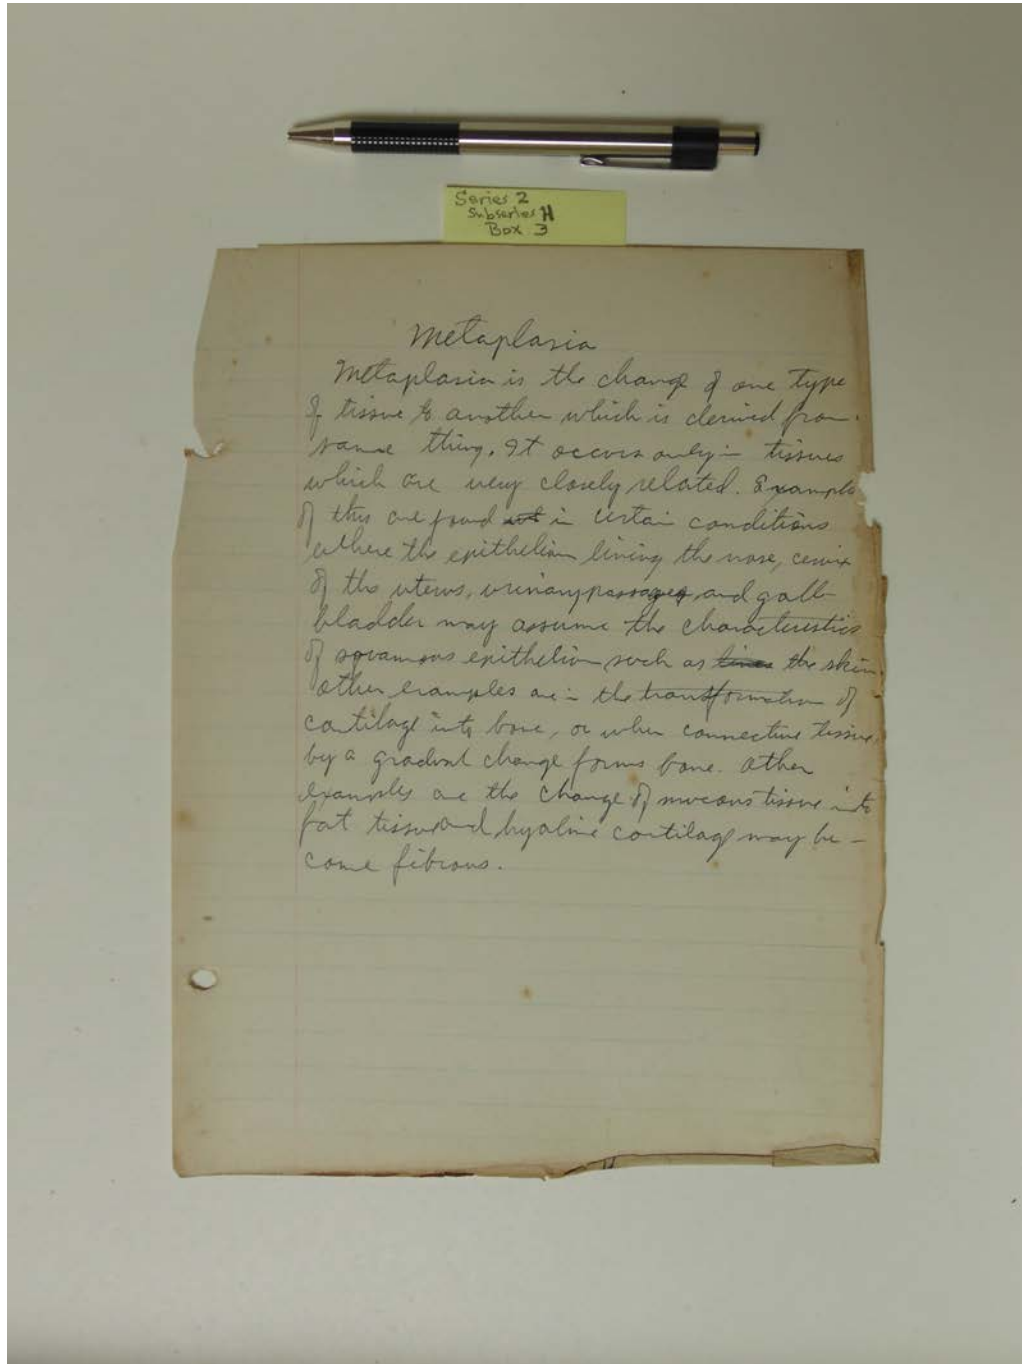 Series 2
Subseries H
Box 3
Metaplasia
Metaplasia is the change of one type
of tissue to another which is derived from
same thing. It occurs only in tissues
which are very closely related. Example
of this are found in certain conditions
where the epithelium lining the nose, cervix
of the uterus, urinary passages, and gall
bladder may assume the characteristics
of squamous epithelium such as the skin.
Other examples are in the transformation of
cartilage into bone, or when connective tissue
by a gradual change forms bone. Other
examples are the change of mucous tissue into
fat tissue and hyaline cartilage may be-
come fibrous.